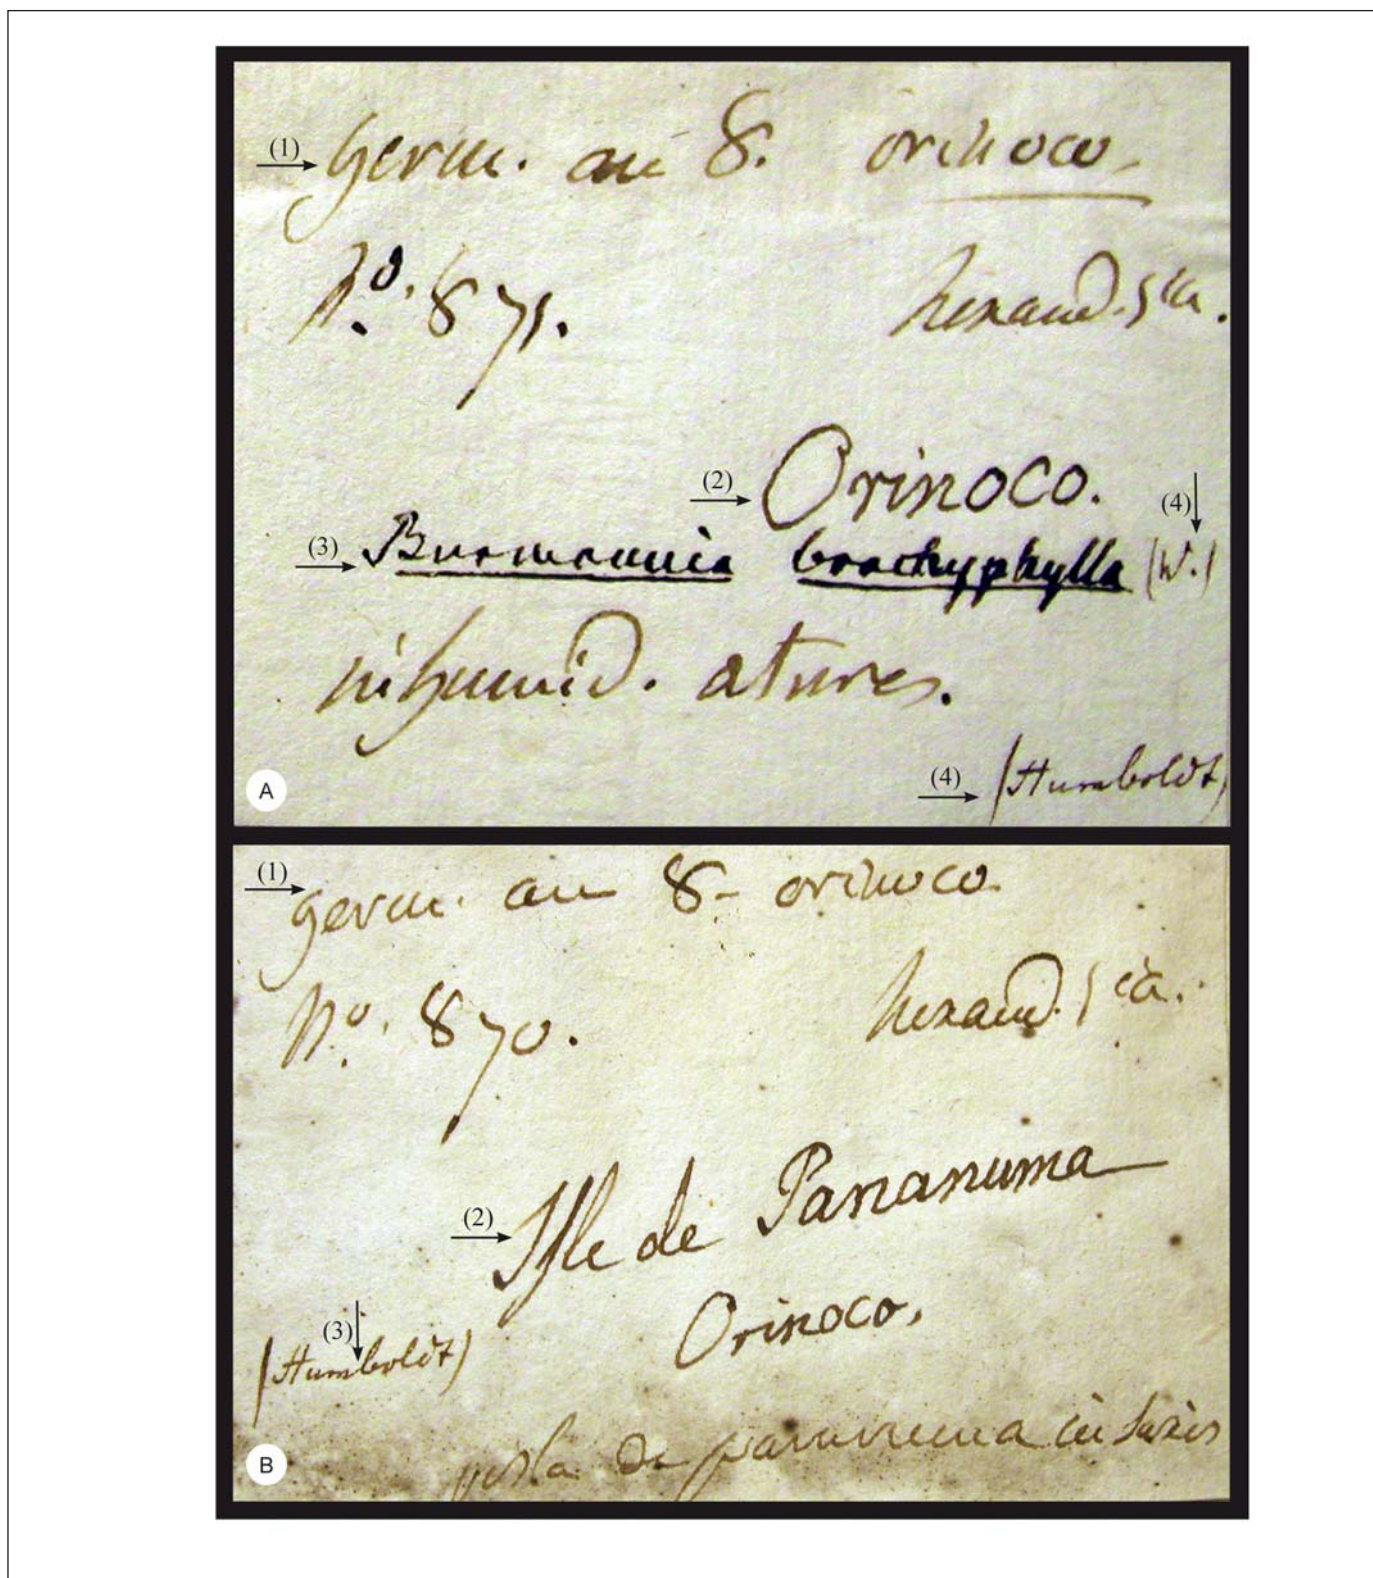 (1) germ. an 8. orinoco.
N.º 871. hexand. 1ia.
(2) Orinoco. (4)
(3) Burmannia brachyphylla (W.)
in humid. atures.
(4) (Humboldt)
A
(1) germ. an 8. orinoco.
N.º 870. hexand. 1ia.
(2) Isle de Pananuma
Orinoco.
(3)
(Humboldt)
isla de pananuma in
B